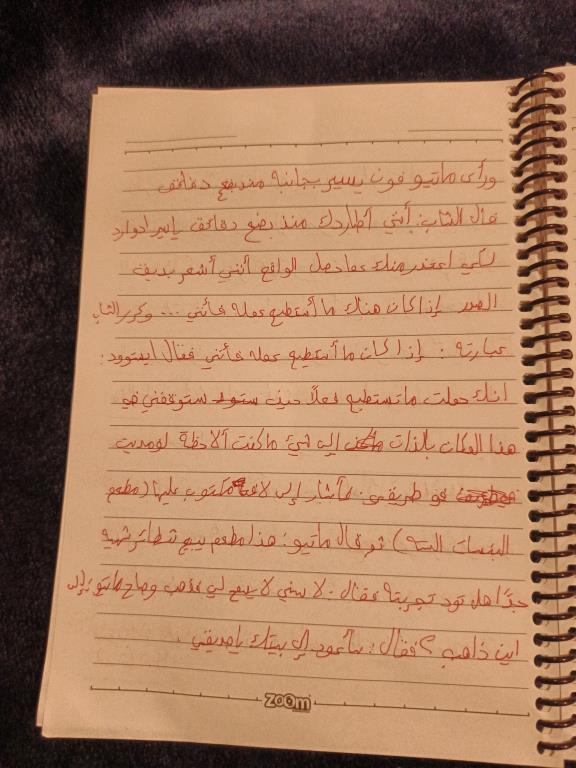 ورأى ماتيو فون يسير بجانبه منذ بضع دقائق
قال الشاب: أنني أطاردك منذ بضع دقائق ياسير ادوارد
لكي اعتذر منك عما حصل الواقع أنني أشعر بضيف
الصدر إذا كان هناك ما أستطيع عمله فأنني ... وكرر الشاب
عبارته: إذا كان ما أستطيع عمله فأنني فقال ايفنوود:
انك حملت ما تستطيع فعلاً حين ستوقفني في
هذا المكان بالذات إلى شيء ما كنت ألاحظة لو مديت
في طريقي. فأشار إلى لافتة مكتوب عليها (مطعم
البنسات الستة) ثم قال ماتيو: هذا مطعم يبيع شطائر شهيه
جدًا هل تود تجربته فقال: لا سني لا يسمح لي فذهب وصاح ماتيو: إلى
اين ذاهب؟ فقال: سأعود إلى بيتك ياصديقي.
ZOOM